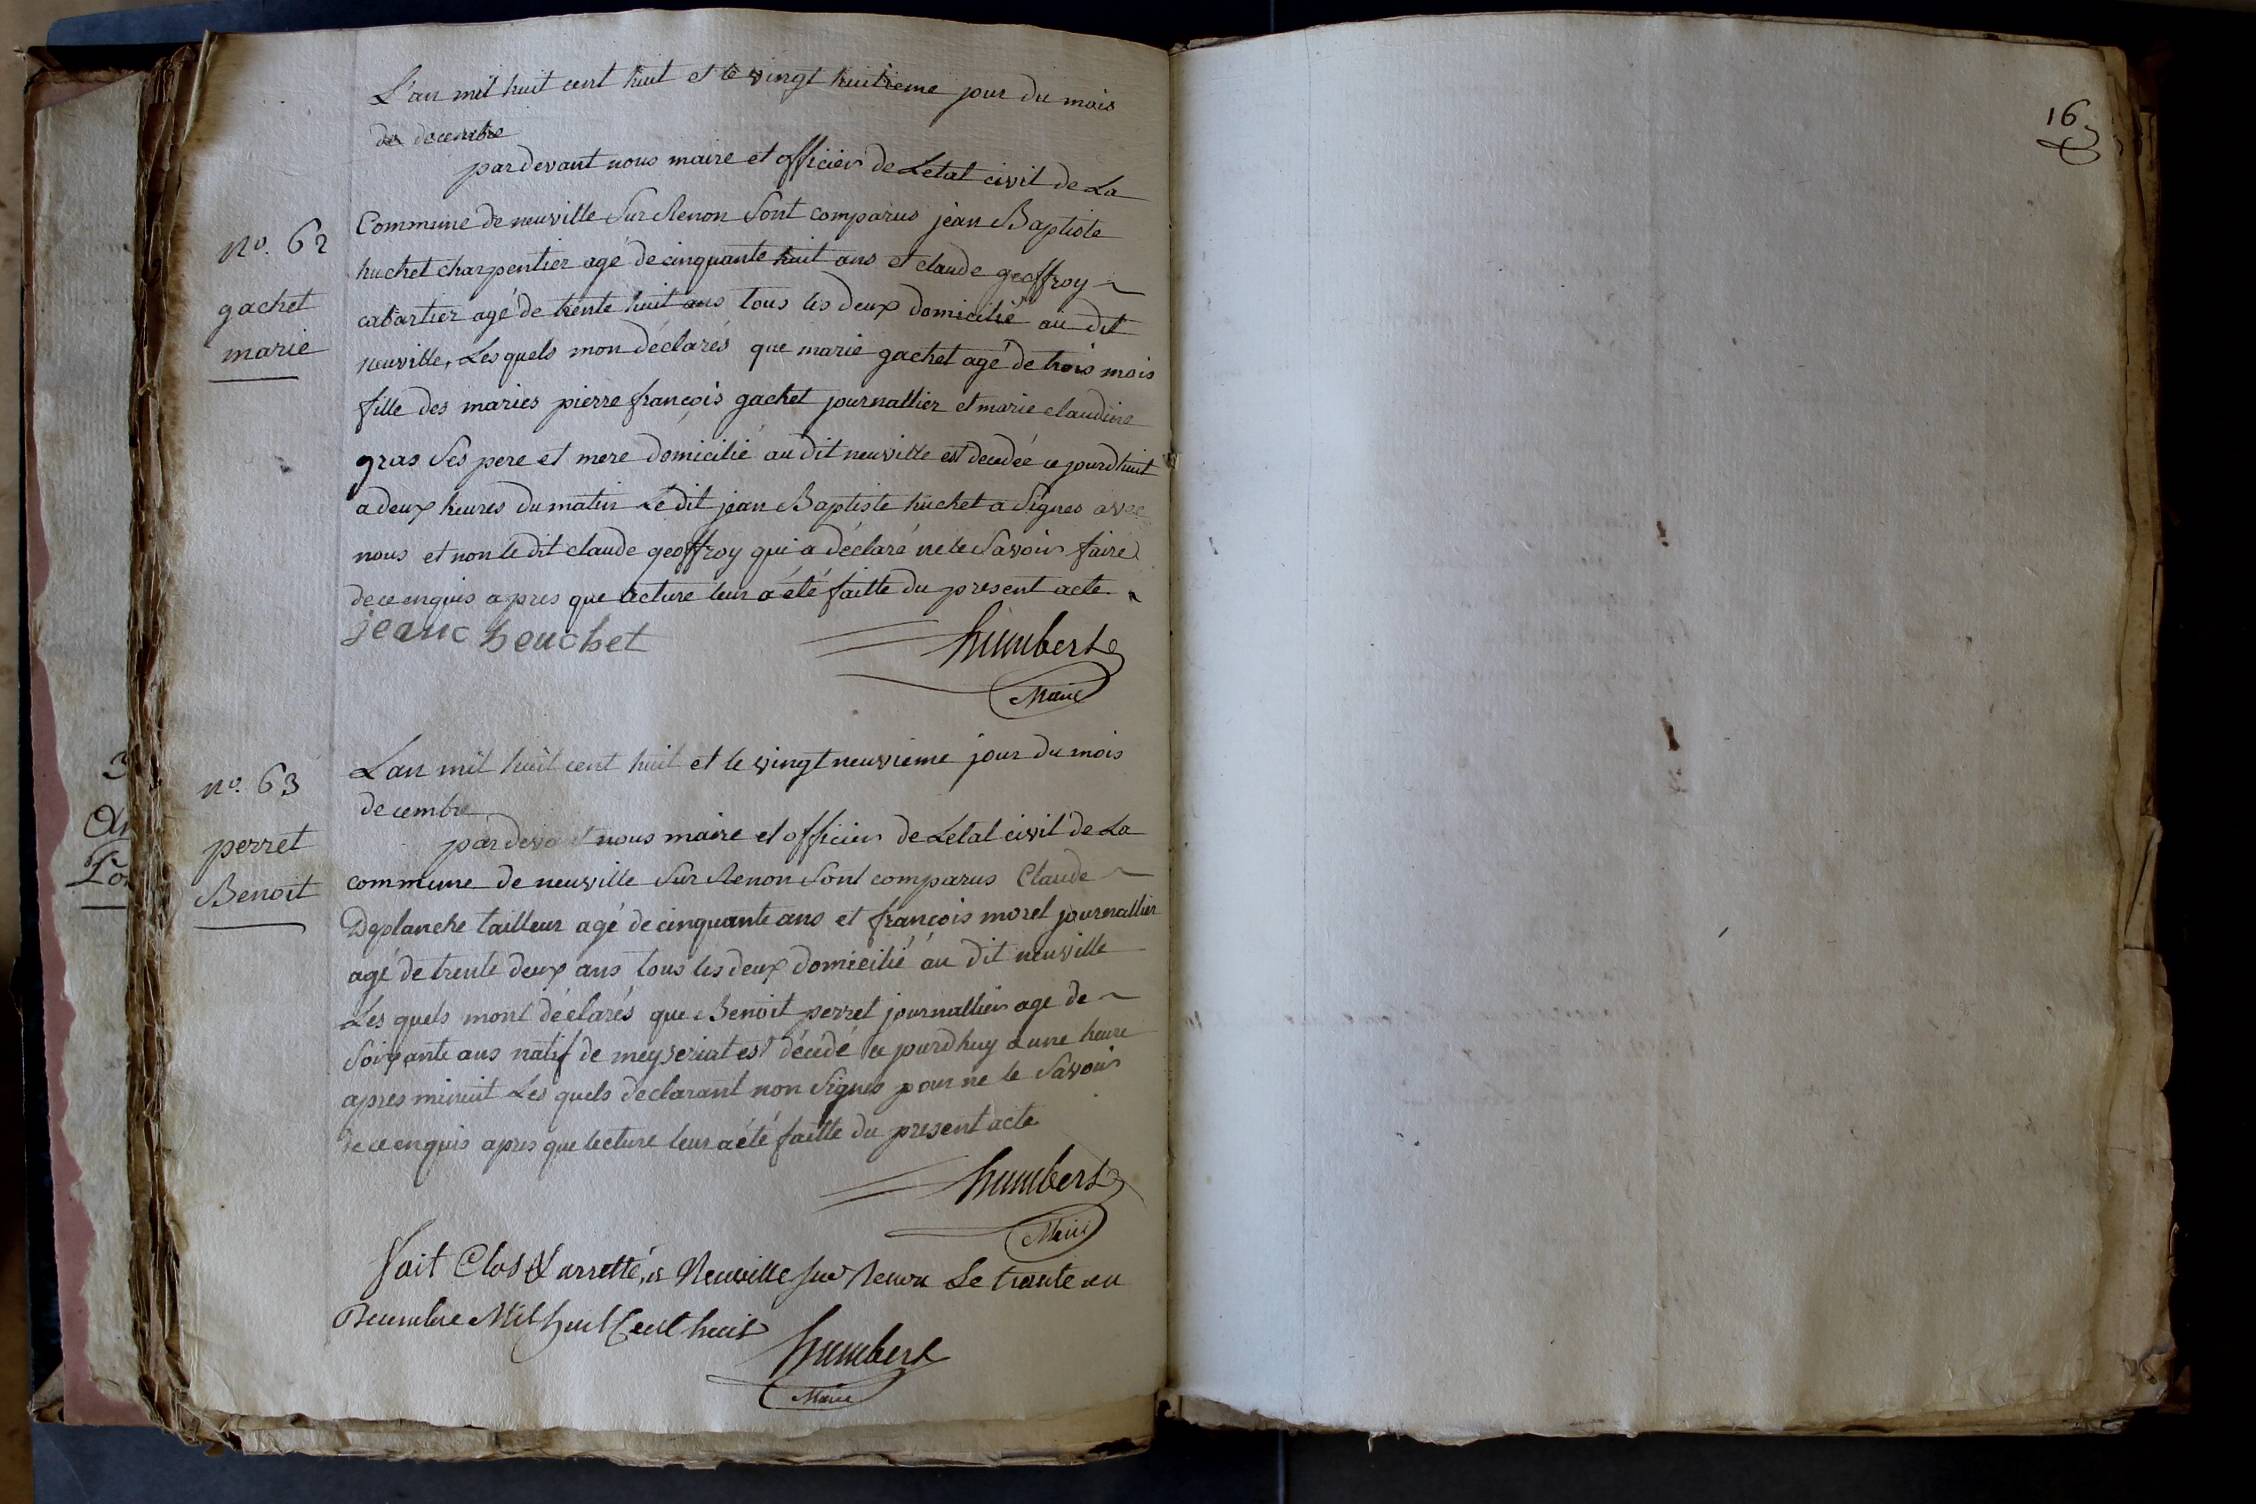 L'an mil huit cent huit et le vingt huitieme jour du mois
de decembre
par devant nous maire et officier de Letat civil de La
No. 62
Commune de neuville Sur Renon Sont comparus jean Baptiste
huchet charpentier agé de cinquante huit ans et claude geoffroy
gachet
cabartier agé de trente huit ans tous les deux domicilié au dit
marie
neuville, Lesquels mon déclarés que marie gachet agé de trois mois
fille des maries pierre françois gachet journallier et marie claudine
gras Ses pere et mere domicilié au dit neuville est decedée ce jourdhuit
a deux heures du matin Le dit jean Baptiste huchet a Signes avec
nous et non le dit claude geoffroy qui a déclaré ne le Savoir faire
de ce enquis apres que lecture leur a été faitte du present acte
jean houchet
humbert
Maire
L'an mil huit cent huit et le vingt neuvieme jour du mois
no. 63
decembre
perret
par devant nous maire et officier de Letat civil de La
Benoit
commune de neuville Sur Renon Sont comparus Claude
Deplanche tailleur agé de cinquante ans et françois morel journallier
agé de trente deux ans tous les deux domicilié au dit neuville
Les quels mont déclarés que Benoit perret journallier age de
Soixante ans natif de meyseriat est décédé ce jourdhuy a une heure
apres minuit Les quels declarant non Signes pour ne le Savoir
de ce enquis apres que lecture leur a été faitte du present acte
humbert
Maire
fait Clos & arretté, a Neuville sur Renon Le trante un
Decembre Mil huit Cent huit
humbert
Maire
16